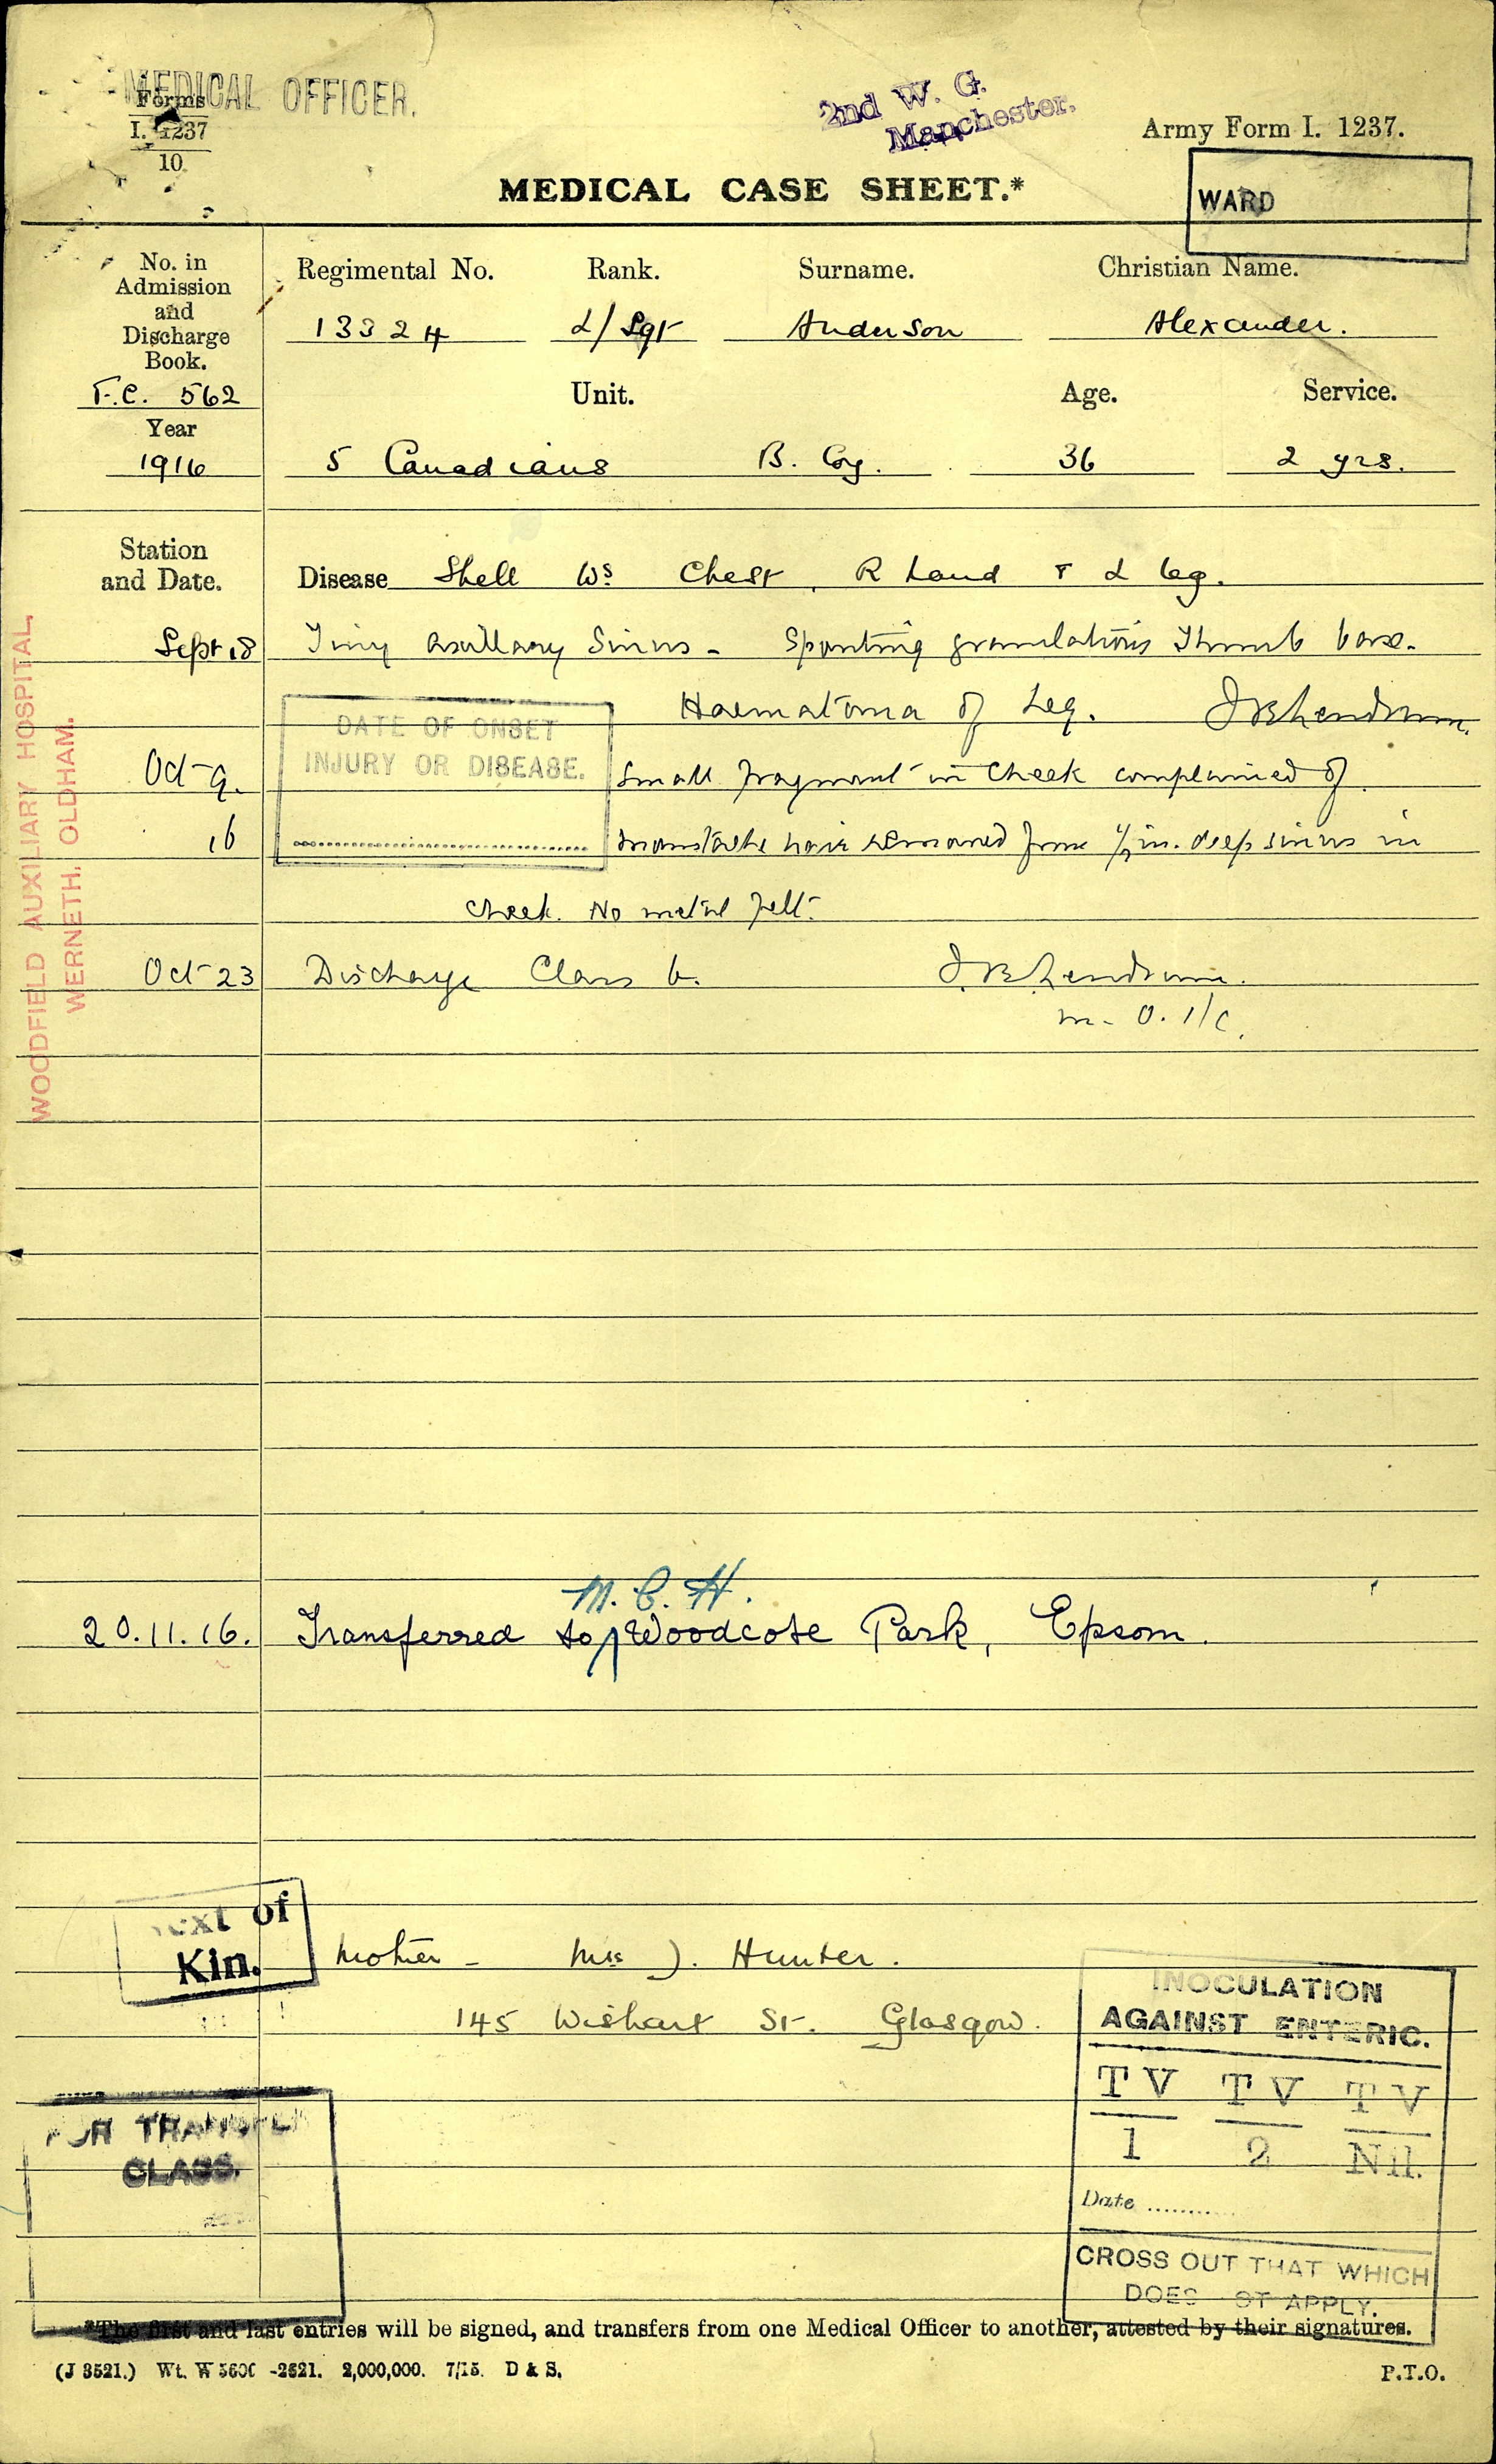 MEDICAL OFFICER.
Forms
I. 1237
10.
2nd W. G.
Manchester.
Army Form I. 1237.
MEDICAL CASE SHEET.*
WARD
No. in
Admission
and
Discharge
Book.
Regimental No. Rank. Surname. Christian Name.
13324 L/Sgt Anderson Alexander.
F.C. 562
Unit. Age. Service.
Year
1916
5 Canadians B. Coy. 36 2 yrs.
Station
and Date.
Disease Shell Ws Chest, R hand + L leg.
Sept 18 Tiny axillary Sinus - Spouting granulations Thumb base.
Haematoma of Leg.
DATE OF ONSET
INJURY OR DISEASE.
Oct 9. Small fragment in Cheek complained of.
16 Moustache hair removed from 1/2 in. deep sinus in
cheek. No metal felt.
Oct 23 Discharge Class b.
M. O. I/C.
WOODFIELD AUXILIARY HOSPITAL,
WERNETH, OLDHAM.
M. C. H.
20.11.16. Transferred to Woodcote Park, Epsom.
Next of
Kin.
Mother - Mrs J. Hunter.
145 Wishart St. Glasgow.
INOCULATION
AGAINST ENTERIC.
T V T V T V
1 2 Nil.
Date ..........
CROSS OUT THAT WHICH
DOES NOT APPLY.
FOR TRANSFER
CLASS.
*The first and last entries will be signed, and transfers from one Medical Officer to another, attested by their signatures.
(J 3521.) Wt. W 5600 -2621. 2,000,000. 7/15. D & S.
P.T.O.